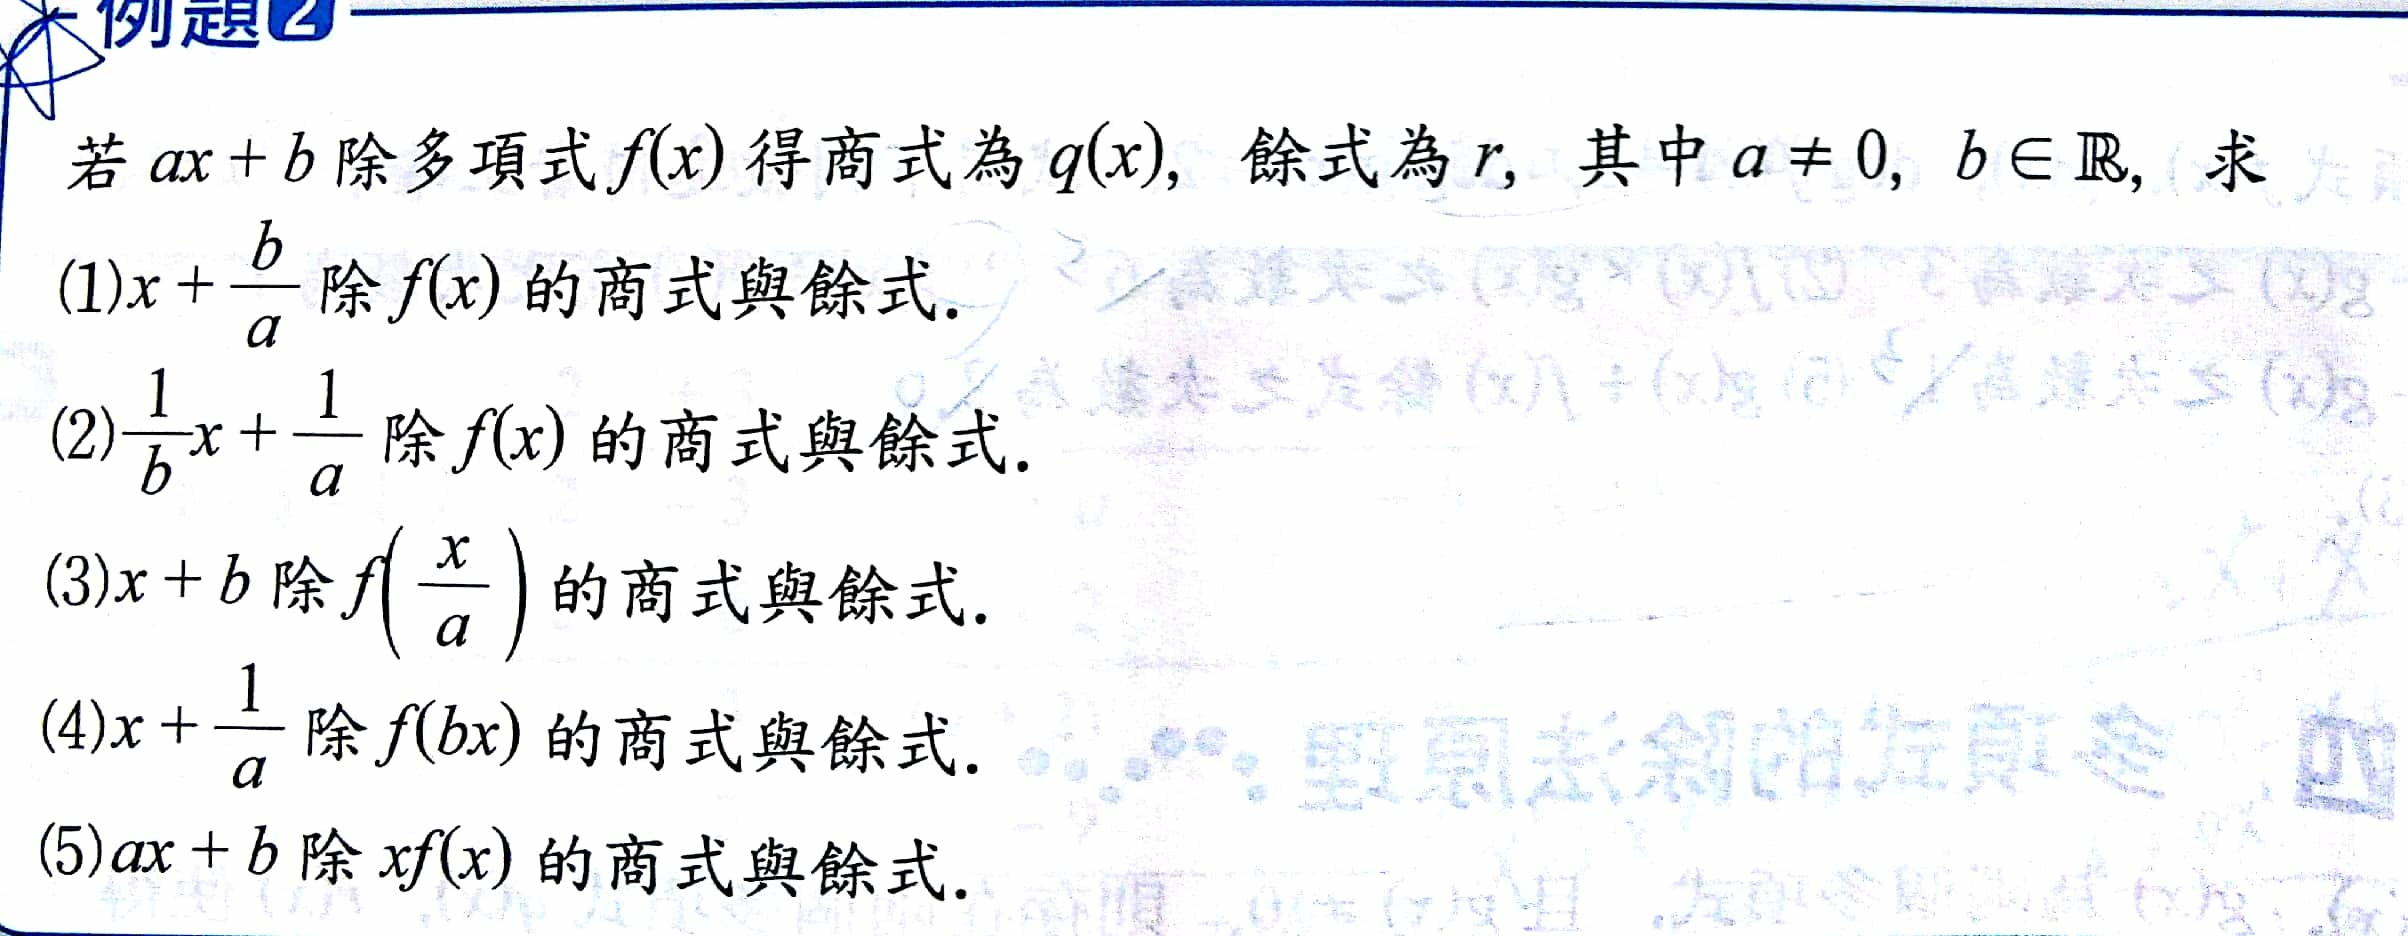 例題2
若 ax + b 除多項式 f(x) 得商式為 q(x), 餘式為 r, 其中 a ≠ 0, b ∈ ℝ, 求
(1) x + \frac{b}{a} 除 f(x) 的商式與餘式.
(2) \frac{1}{b}x + \frac{1}{a} 除 f(x) 的商式與餘式.
(3) x + b 除 f(\frac{x}{a}) 的商式與餘式.
(4) x + \frac{1}{a} 除 f(bx) 的商式與餘式.
(5) ax + b 除 xf(x) 的商式與餘式.